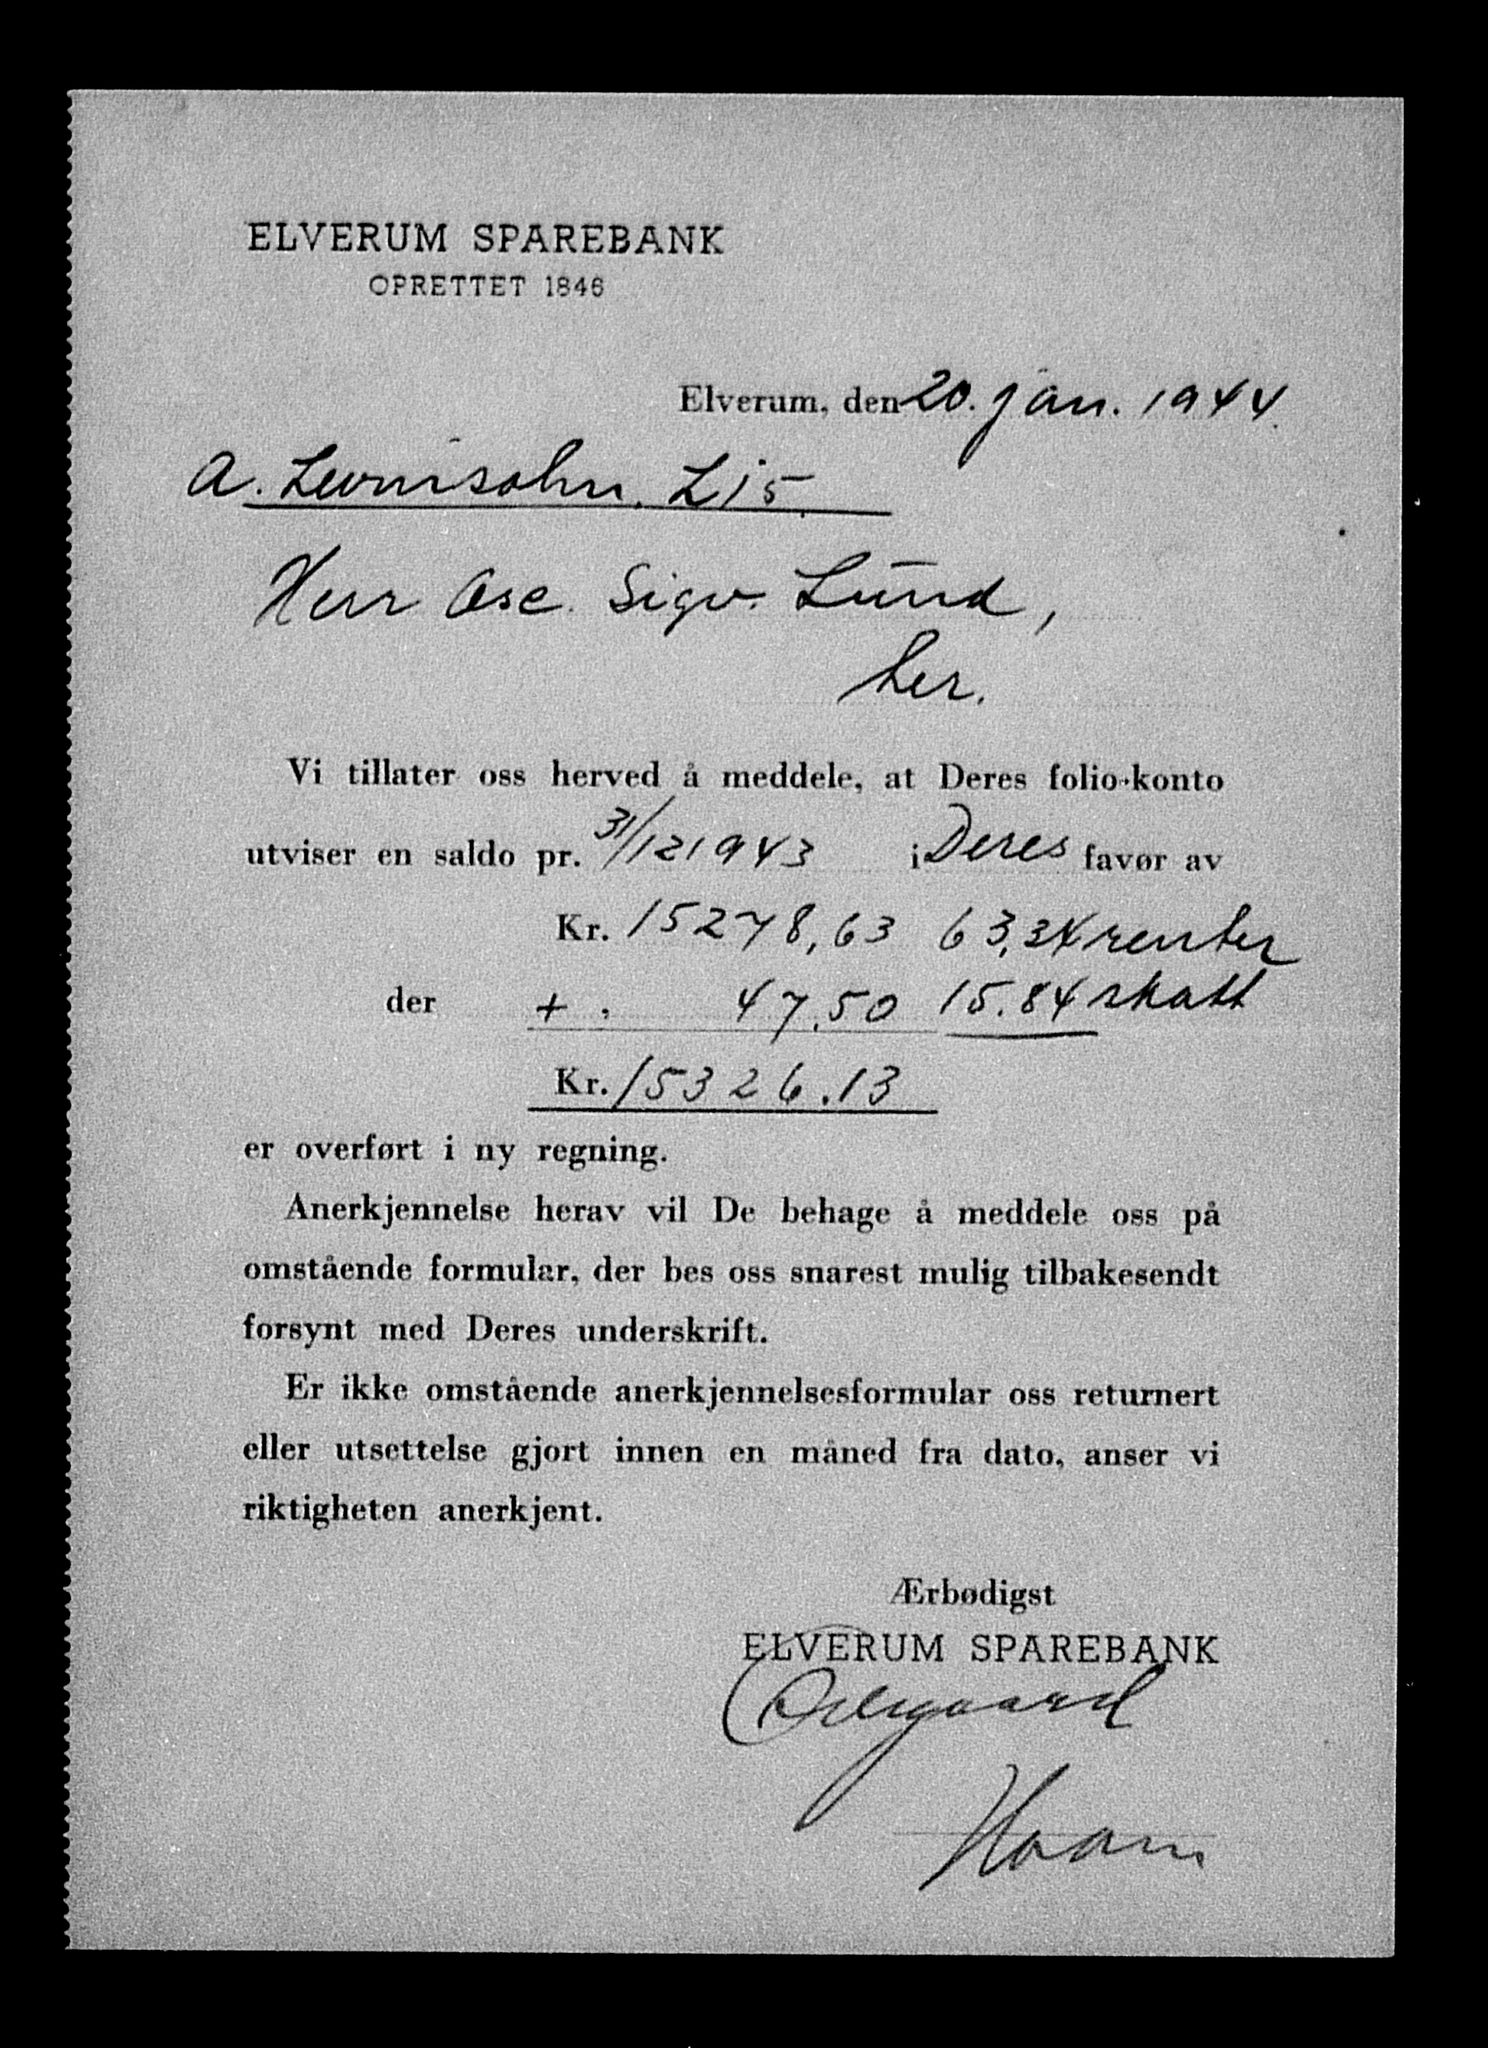 ELVERUM SPAREBANK
OPRETTET 1846
Elverum, den 20. jan. 1944.
A. Levinsohn. L 15.
Herr Osc. Sigv. Lund,
her.
Vi tillater oss herved å meddele, at Deres folio-konto
utviser en saldo pr. 31/12 1943 i Deres favør av
Kr. 15278,63 63,34 renter
der + , 47.50 15.84 skatt
Kr. 15326.13
er overført i ny regning.
Anerkjennelse herav vil De behage å meddele oss på
omstående formular, der bes oss snarest mulig tilbakesendt
forsynt med Deres underskrift.
Er ikke omstående anerkjennelsesformular oss returnert
eller utsettelse gjort innen en måned fra dato, anser vi
riktigheten anerkjent.
Ærbødigst
ELVERUM SPAREBANK